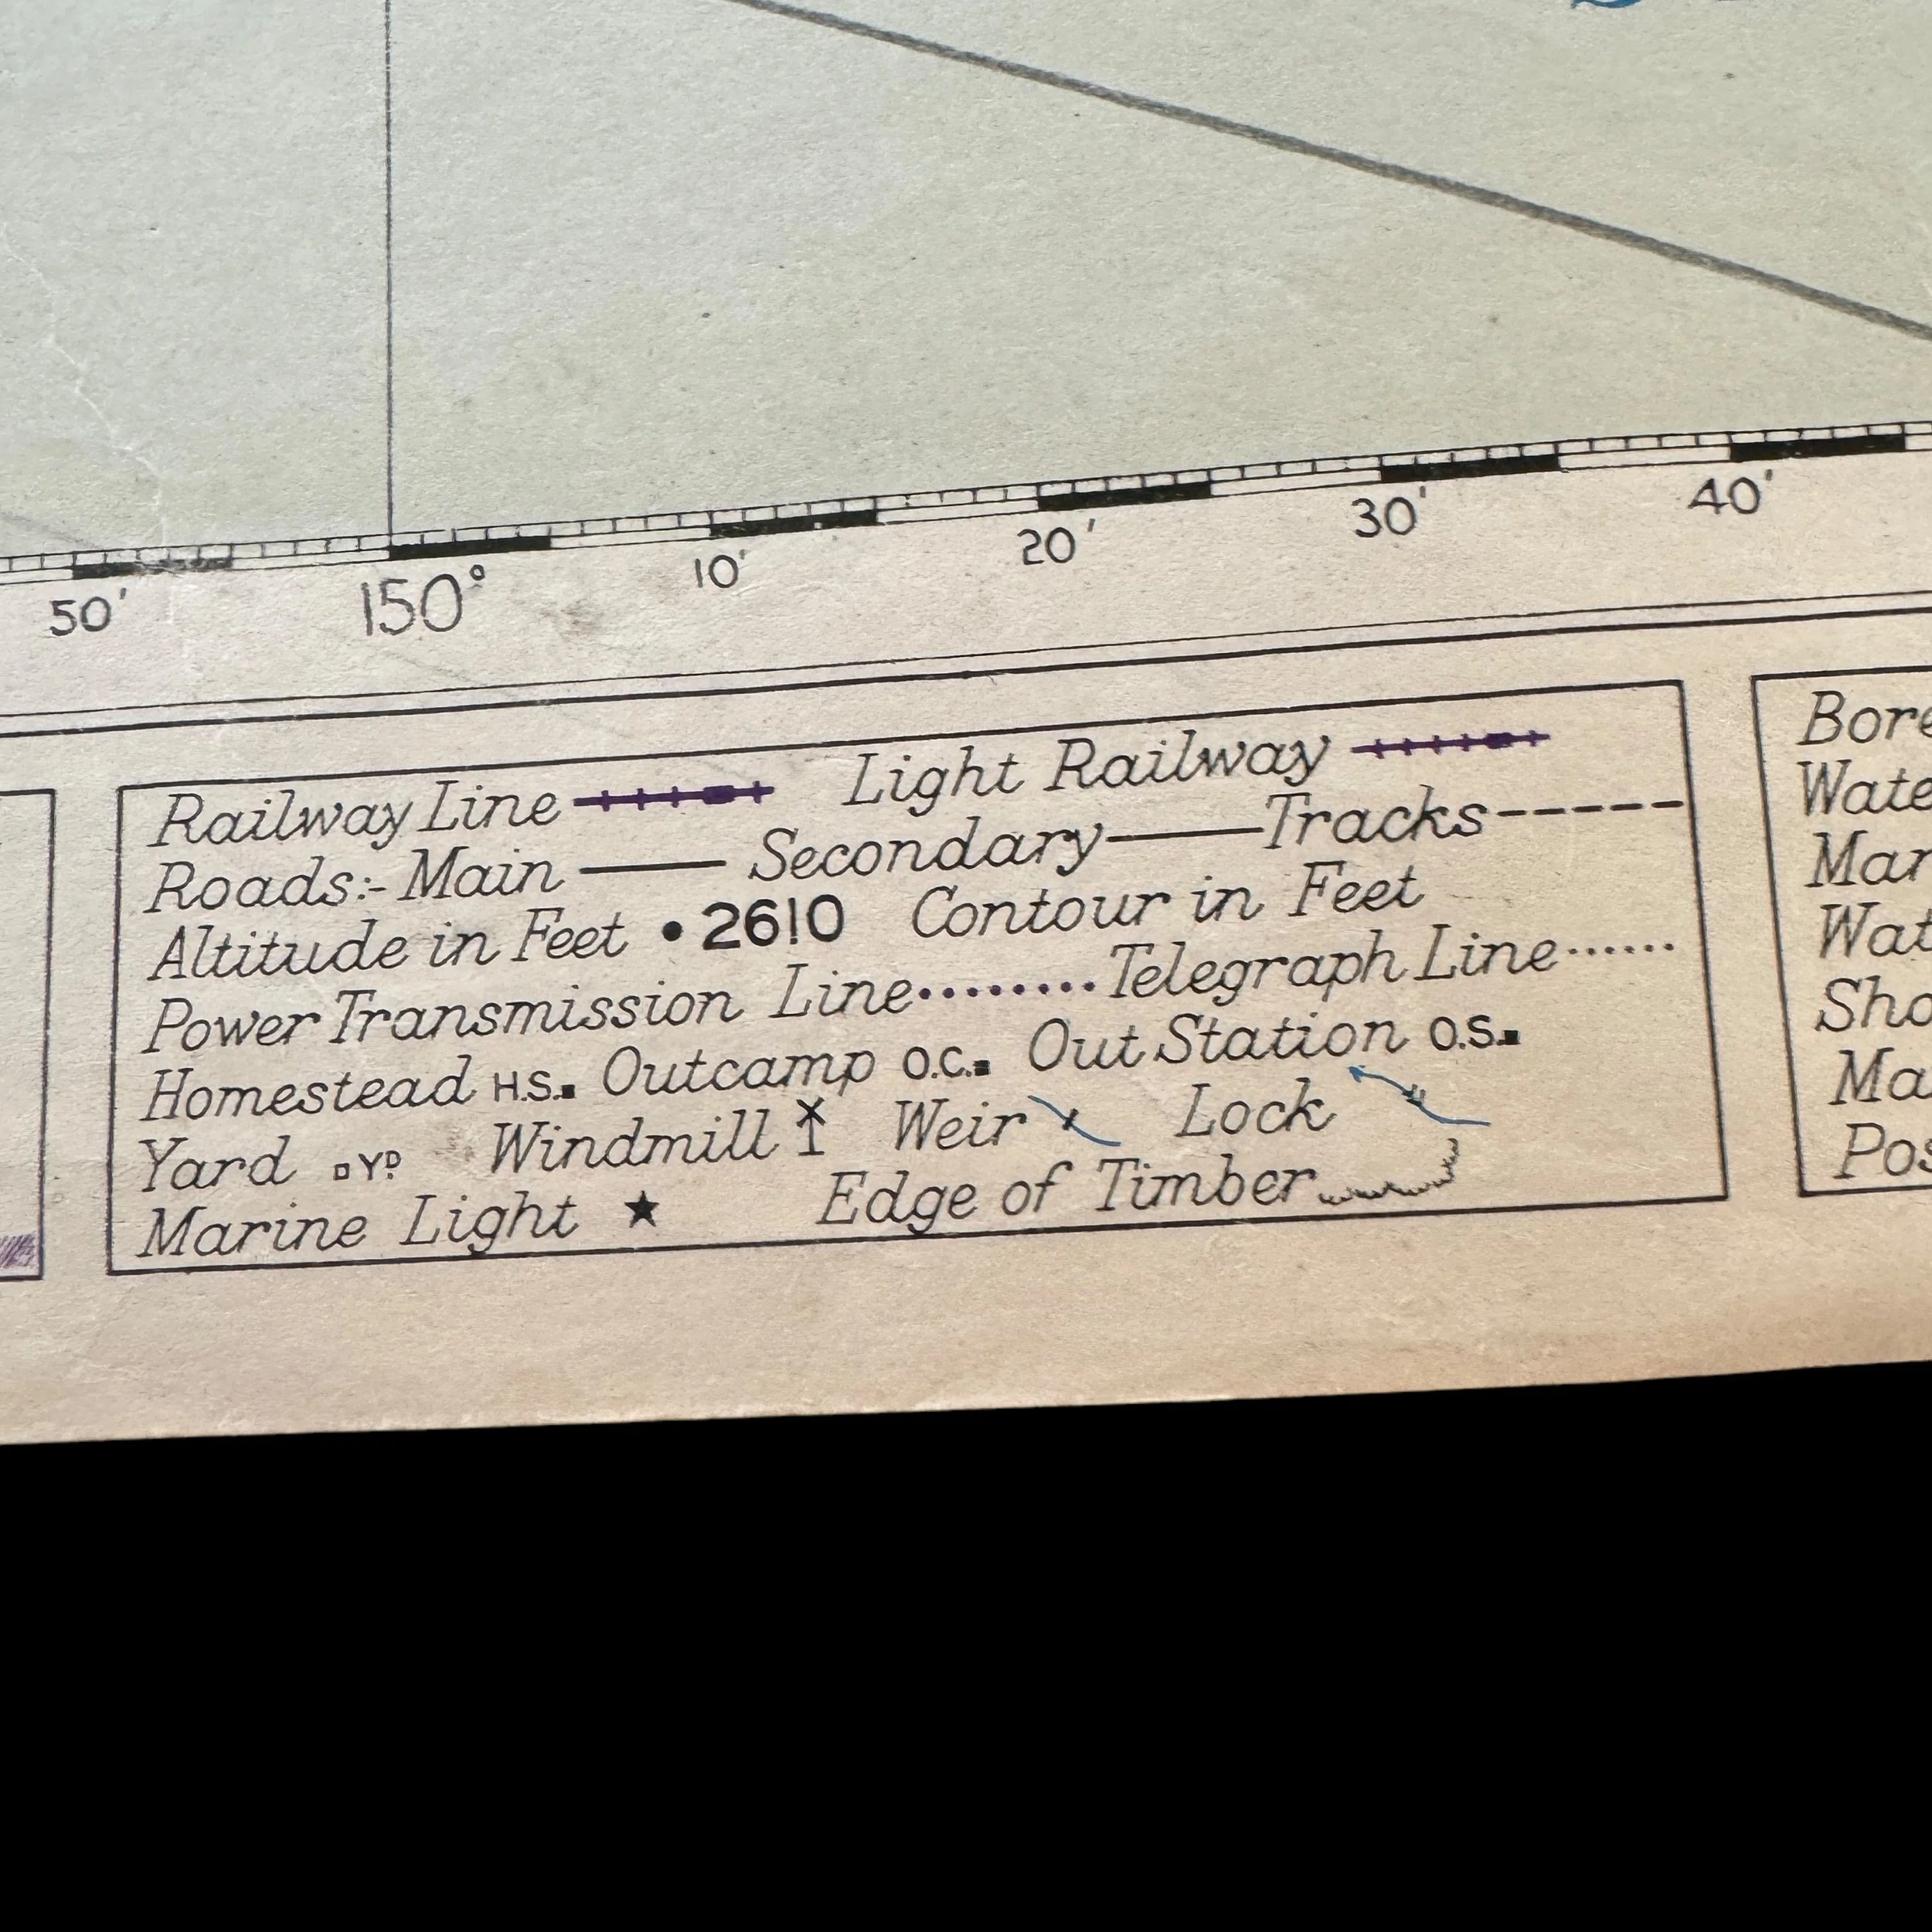 50' 150° 10' 20' 30' 40'
Railway Line Light Railway
Roads:- Main Secondary Tracks
Altitude in Feet • 2610 Contour in Feet
Power Transmission Line Telegraph Line
Homestead H.S. Outcamp O.C. Out Station O.S.
Yard YD Windmill Weir Lock
Marine Light ★ Edge of Timber
Bore
Wate
Mar
Wat
Sho
Ma
Pos